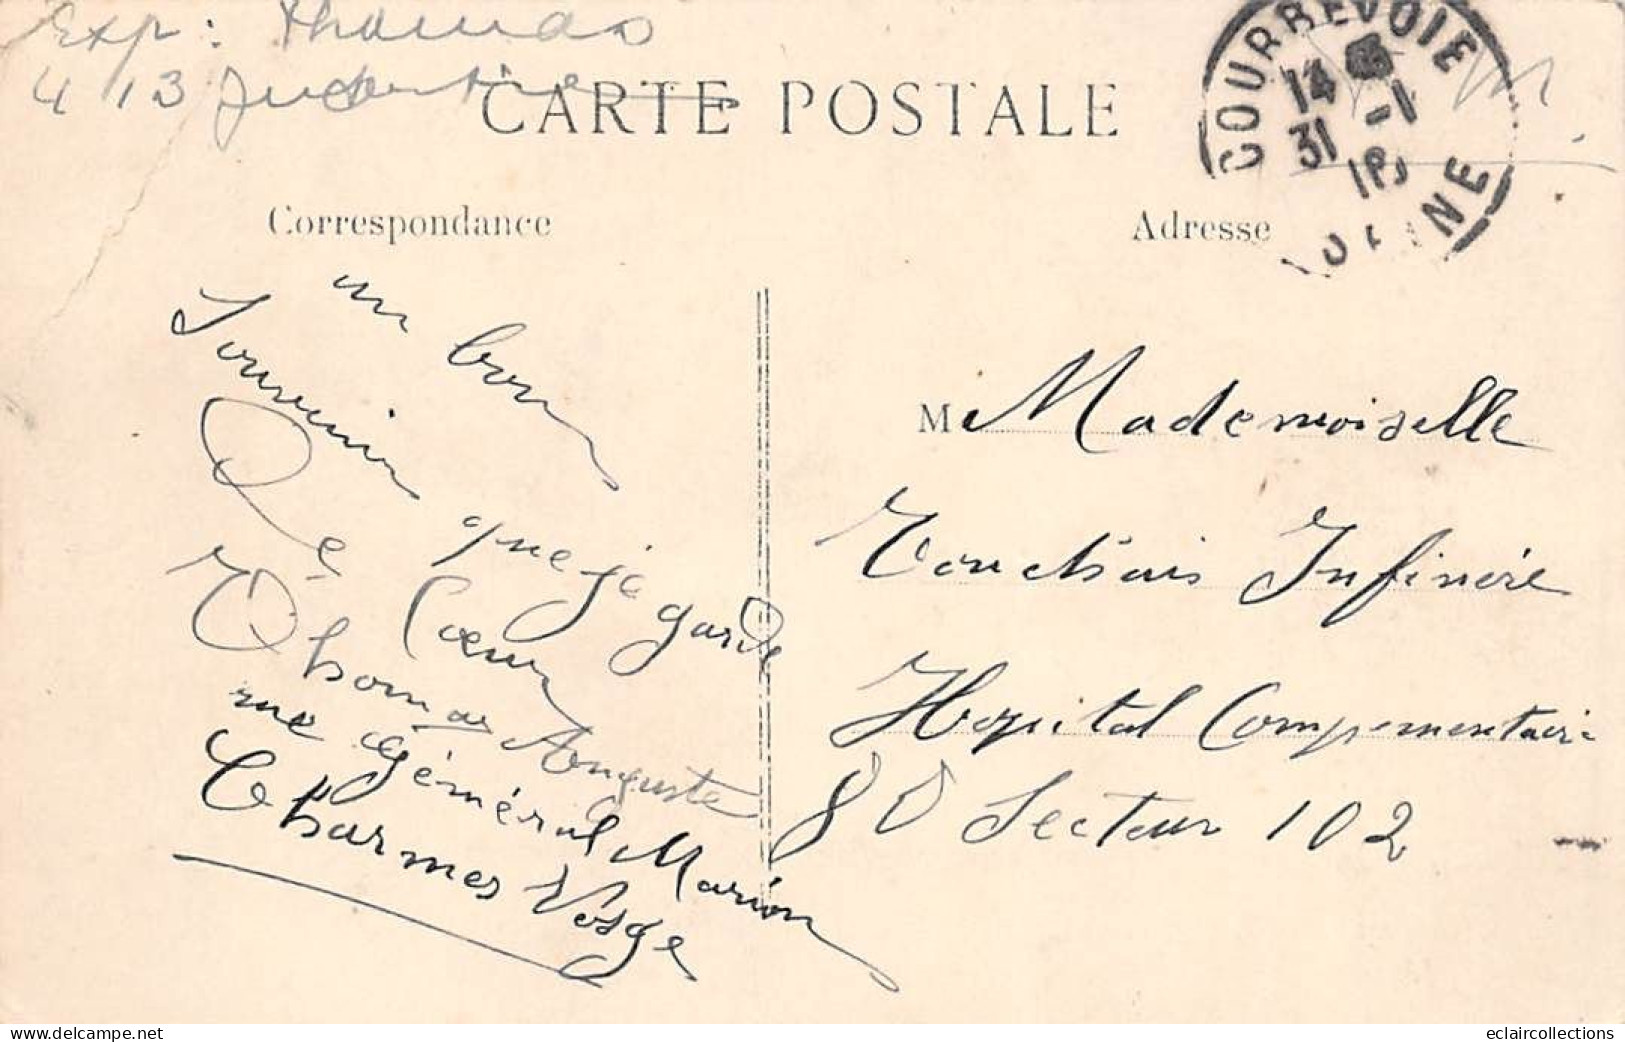 Exp: Thomas
413
CARTE POSTALE
COURBEVOIE
14
31 -1
18
SEINE
Correspondance
Adresse
un bon
Souvenir
que je garde
De
Coeur
Thomas Auguste
rue Général Marion
Charmes Vosge
M Mademoiselle
Touchais Infimére
Hopital Compementaire
80 Secteur 102
eclaircollections